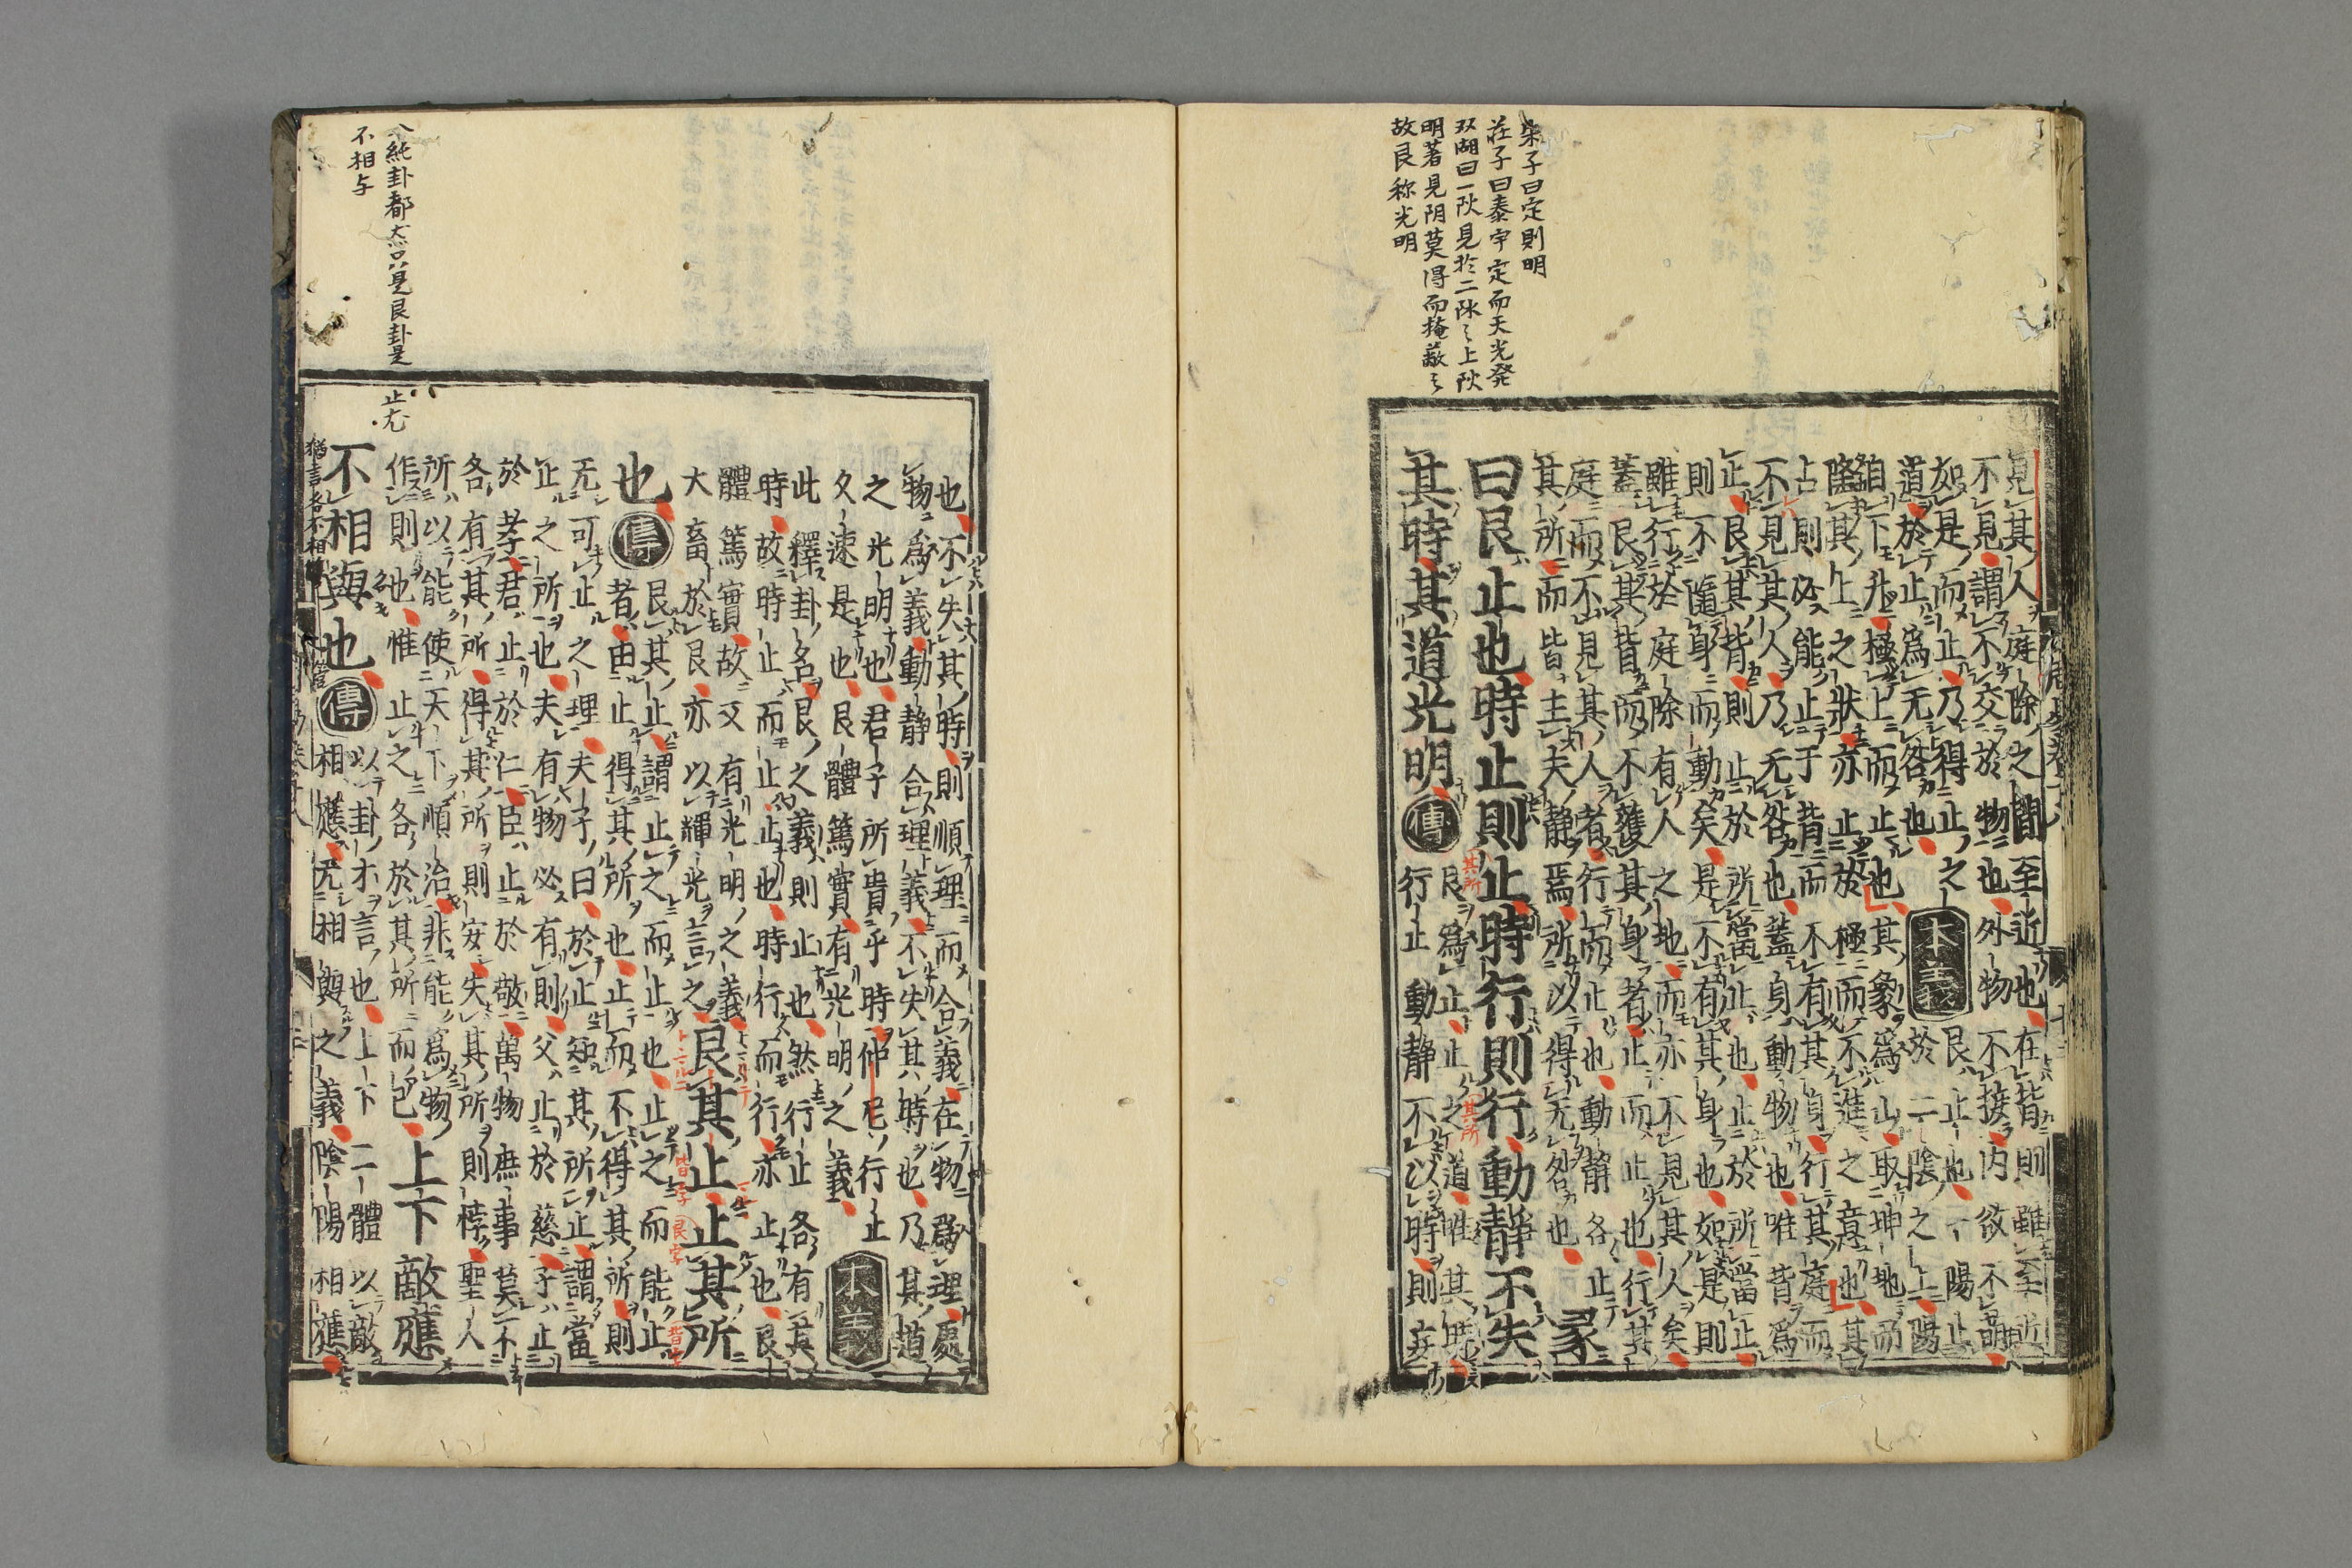 朱子曰定則明
莊子曰泰宇定而天光発
双湖曰一阦見於二阴ヽ上阦
明著見阴莫得而掩蔽之
故艮称光明
見其人庭除之間至近也在背則雖至近
不見謂不交於物也外物不接内欲不萌
如是而止乃得止之
道於止爲无咎也
本義
艮止也一陽止
於二陰之上陽
自下升極上而止也其象爲山取坤地而
隆其上之狀亦止於極而不進之意也其
占則必能止于背而不有其身行其庭而
不見其人乃无咎也蓋身動物也唯背爲
止艮其背則止於所當止也止於所當止
則不隨身而動矣是不有其身也如是則
雖行於庭除有人之地而亦不見其人矣
蓋艮其背而不獲其身者止而止也行其
庭而不見其人者行而止也動靜各止
其所而皆主夫靜焉所以得无咎也
彖
曰艮止也時止則止時行則行動靜不失
其時其道光明
傳
艮爲止止之道唯其時
行止動靜不以時則妄
也不失其時則順理而合義在物爲理處
物爲義動靜合理義不失其時也乃其道
之光明也君子所貴乎時仲尼行止
久速是也艮體篤實有光明之義
本義
此釋卦名艮之義則止也然行止各有其
時故時止而止止也時行而行亦止也艮
體篤實故又有光明之義
大畜於艮亦以輝光言之
艮其止止其所
也
傳
艮其止謂止之而止也止之而能止
者由止得其所也止而不得其所則
无可止之理夫子曰於止知其所止謂當
止之所也夫有物必有則父止於慈子止
於孝君止於仁臣止於敬萬物庶事莫不
各有其所得其所則安失其所則悖聖人
所以能使天下順治非能爲物
作則也惟止之各於其所而已
上下敵應
不相與也
傳
以卦才言也上下二體以敵
相應无相與之義陰陽相應
八純卦都
只是艮卦是
不相与